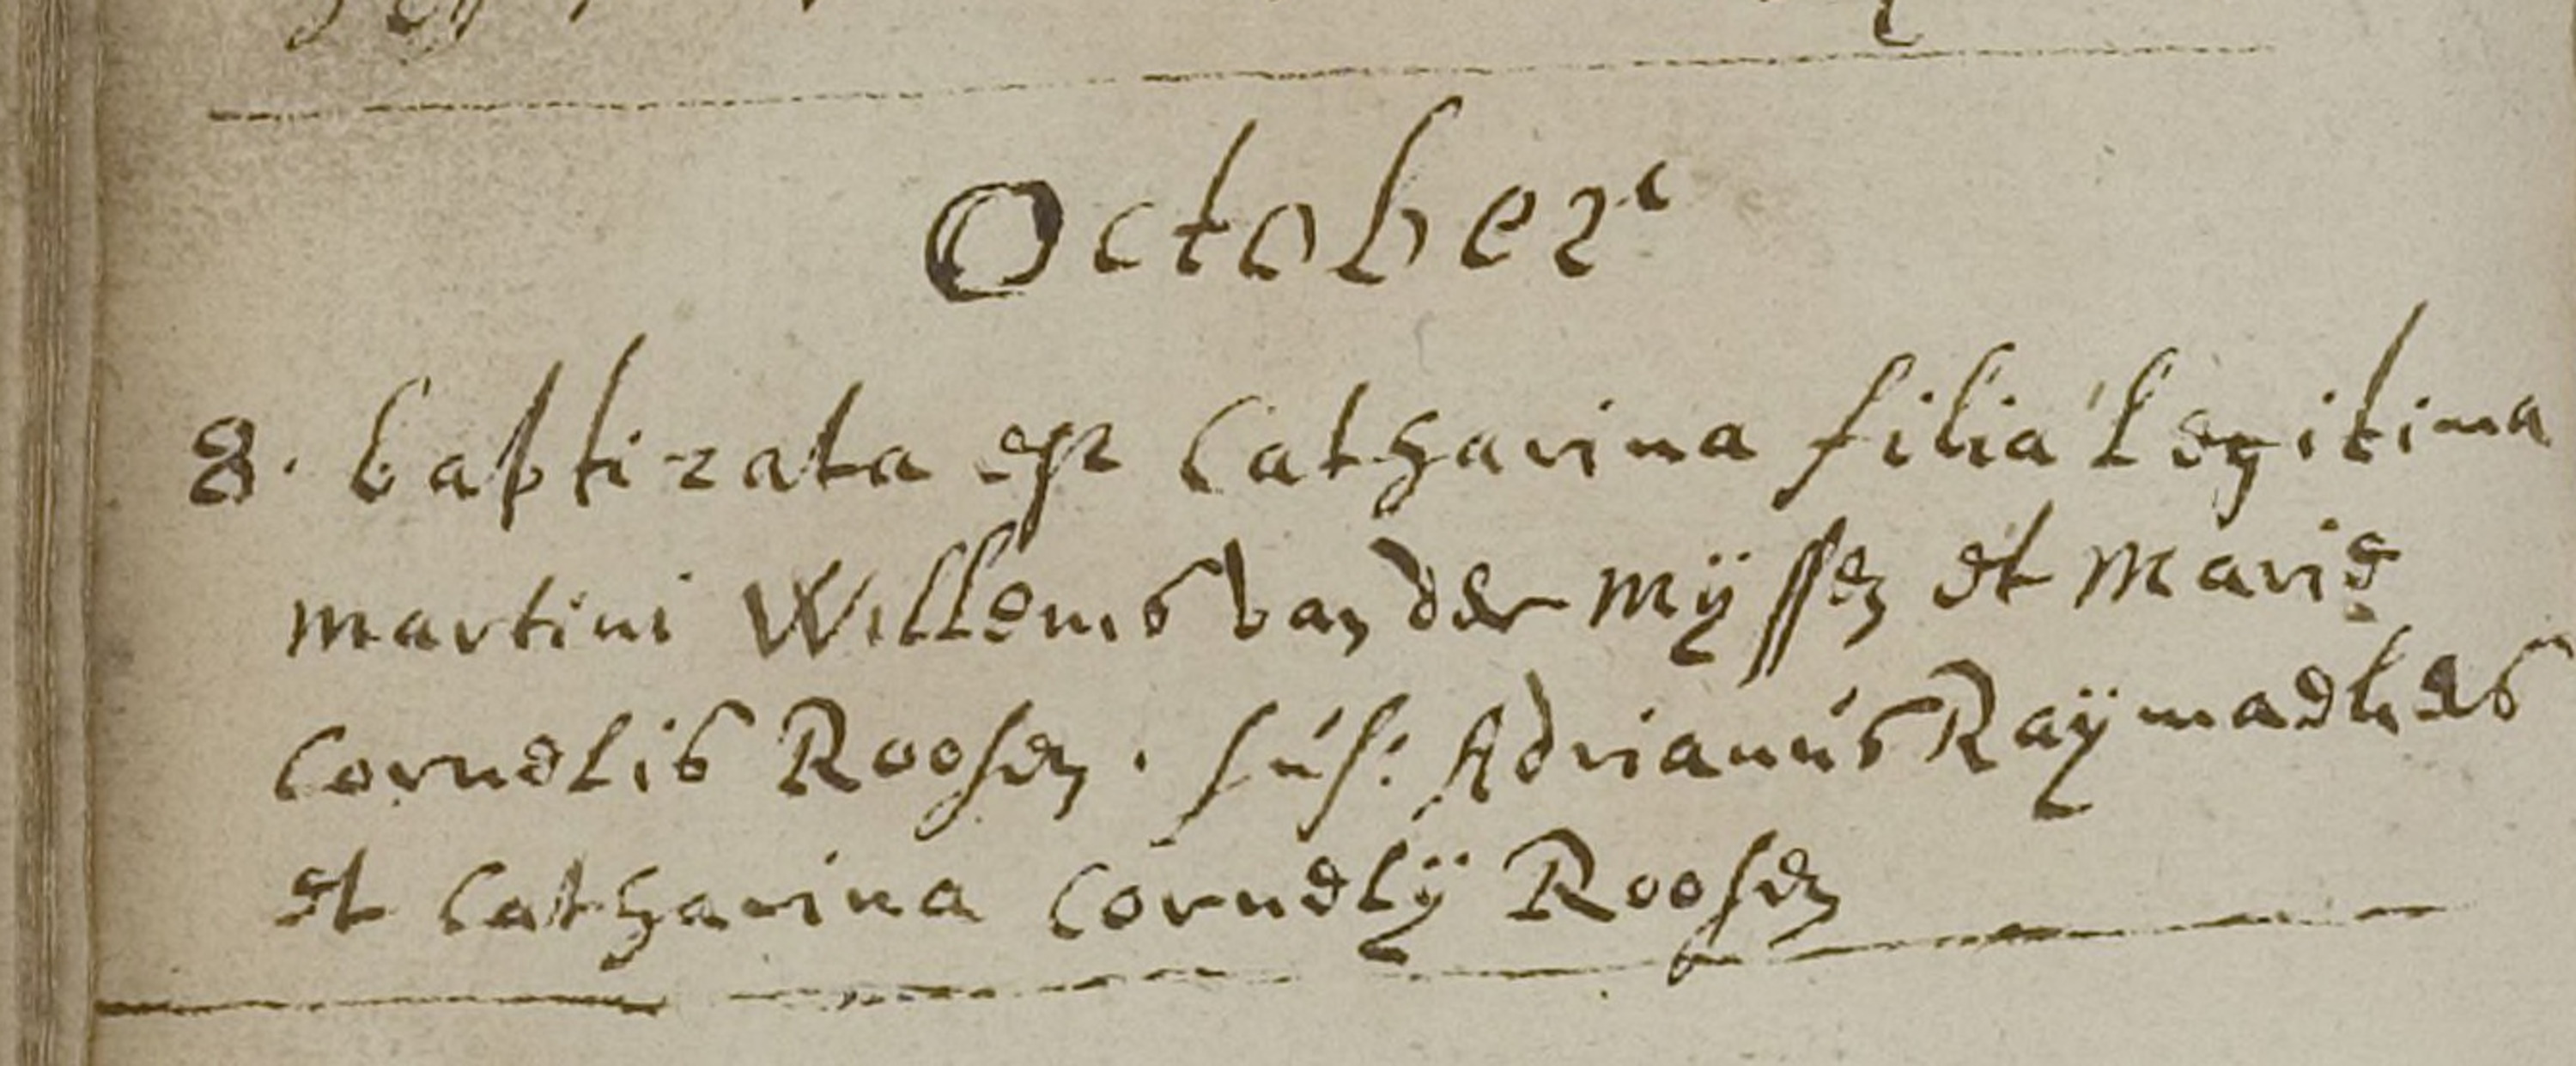 October
8. baptizata est Catharina filia Legitima
martini Willems van der Mÿssen et Marie
Cornelis Roosen. sus: Adrianus Raÿmaekers
et Catharina Cornelÿ Roosen